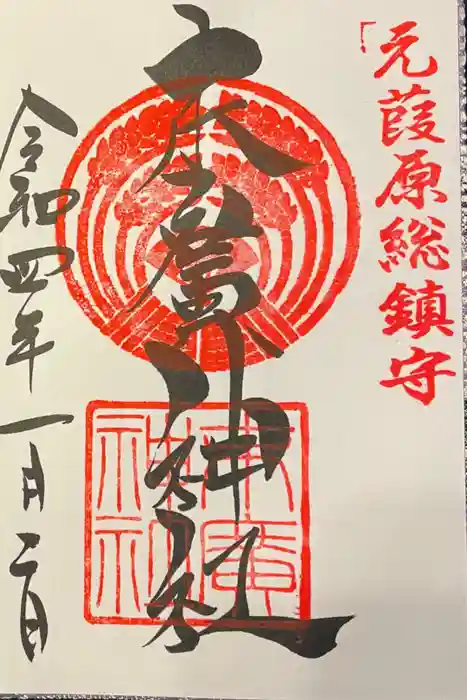 元葭原総鎮守
末廣神社
令和四年一月二日
末廣
神社